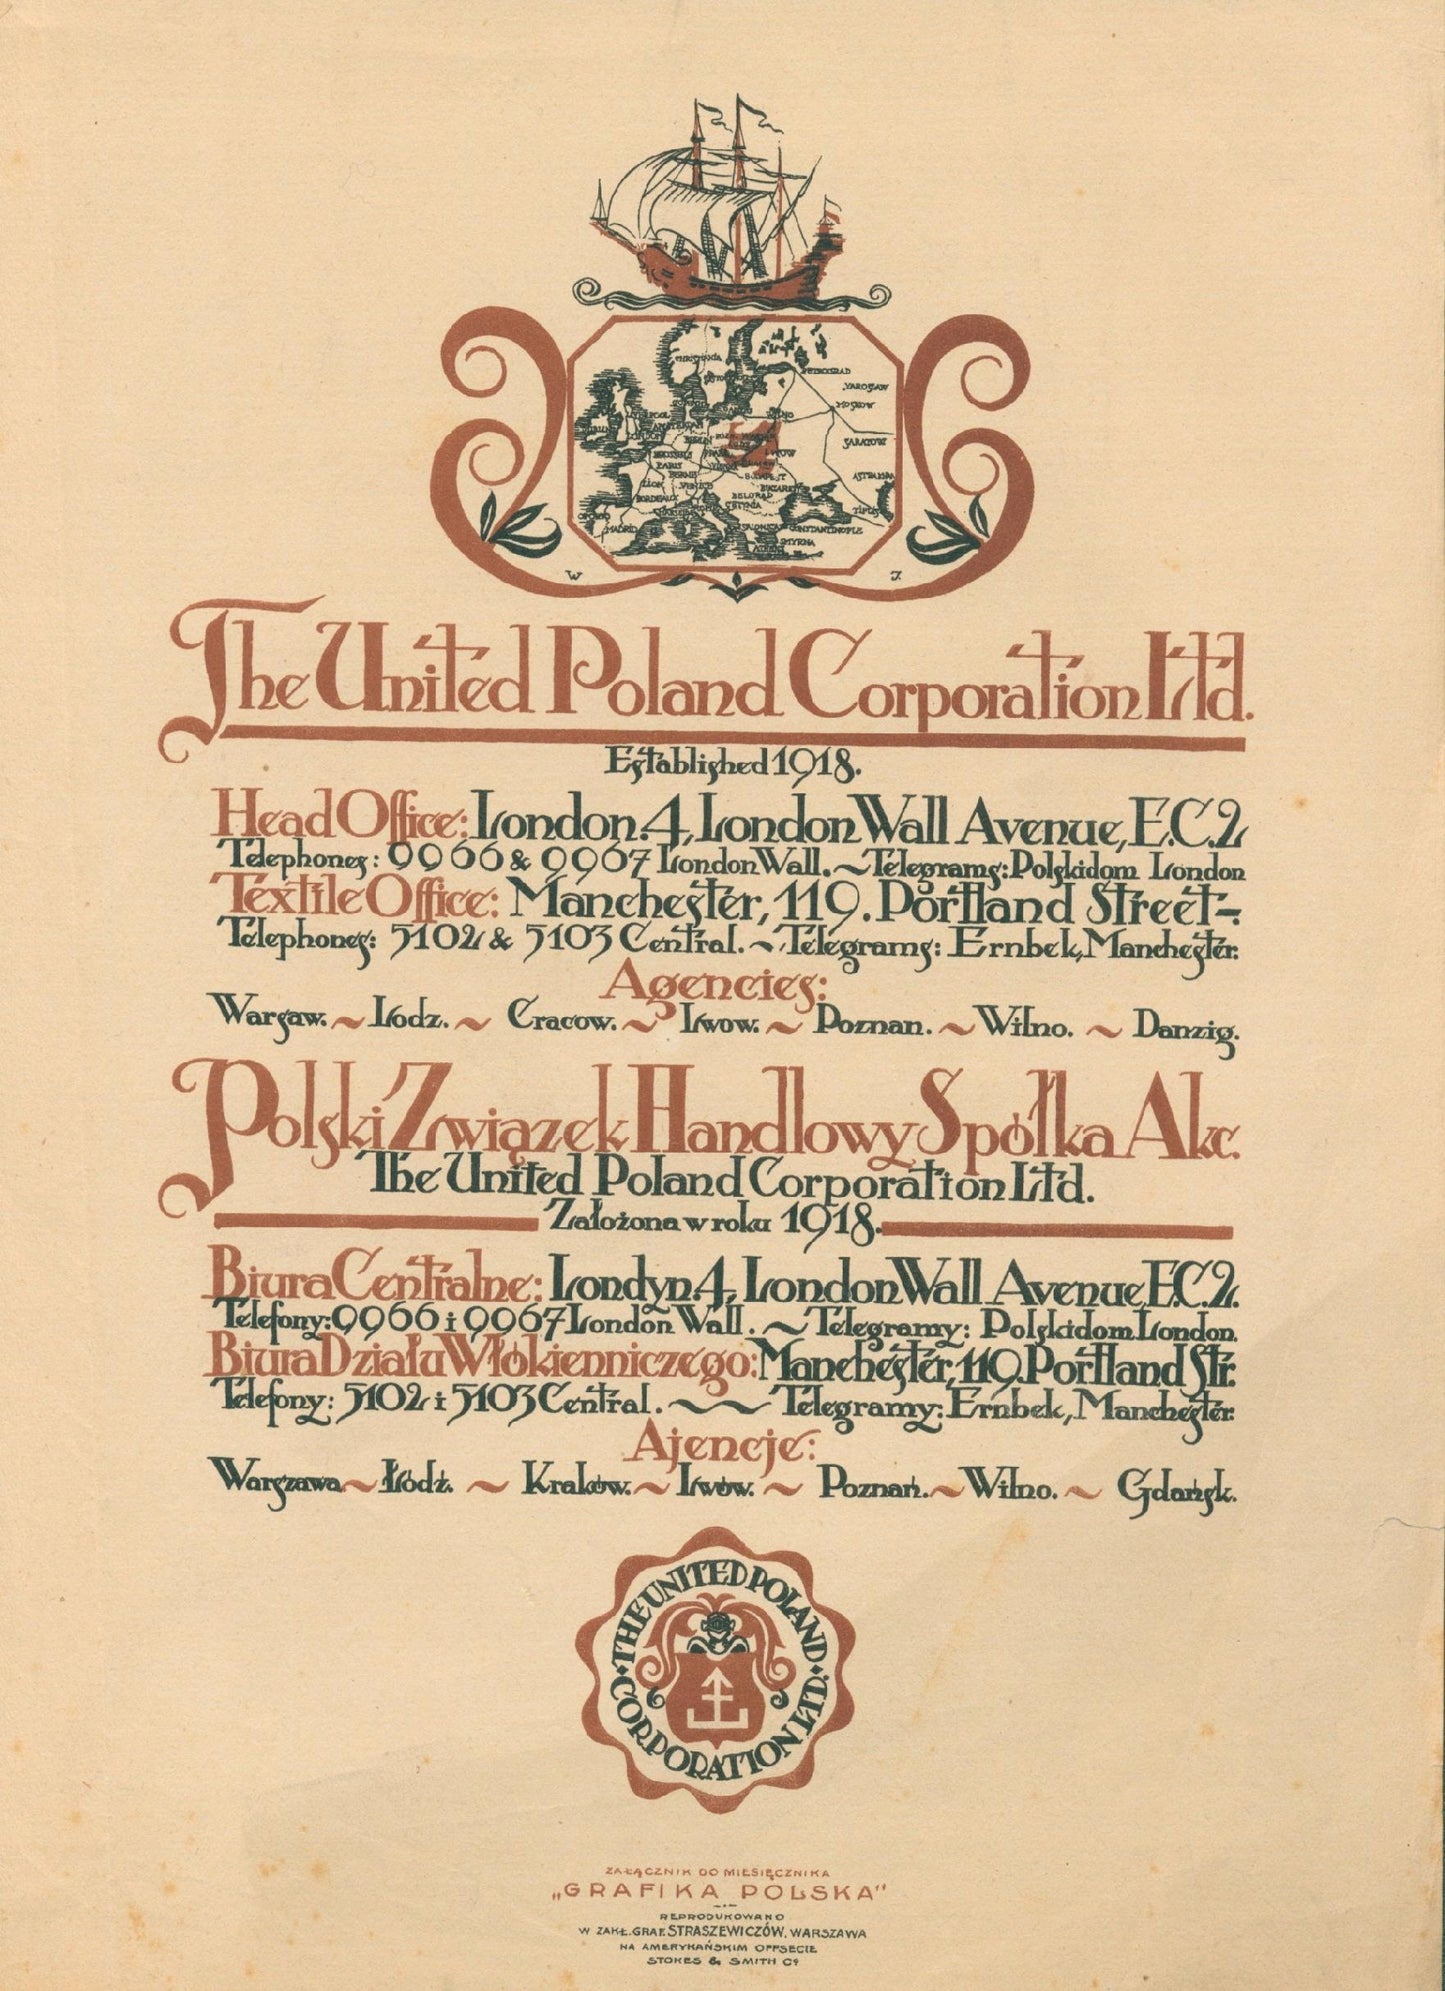 CHRISTIANIA
PETROGRAD
YAROSLAW
MOSKOW
LIVERPOOL
LONDON
AMSTERDAM
BERLIN
SARATOW
LWOW
BRUSSELS
PARIS
BERNE
LION
VENICE
BUDAPEST
BUKAREST
BELGRAD
CETYNIA
BORDEAUX
MADRID
SALONICA
CONSTANTINOPLE
SMYRNA
TIFLIS
W J
The United Poland Corporation Ltd.
Established 1918.
Head Office: London. 4, London Wall Avenue, E.C.2
Telephones: 9966 & 9967 London Wall. ~ Telegrams: Polskidom London
Textile Office: Manchester, 119. Portland Street-.
Telephones: 5102 & 5103 Central. ~ Telegrams: Ernbek, Manchester.
Agencies:
Warsaw. ~ Lodz. ~ Cracow. ~ Lwow. ~ Poznan. ~ Wilno. ~ Danzig.
Polski Związek Handlowy Spółka Akc.
The United Poland Corporation Ltd.
Założona w roku 1918.
Biura Centralne: Londyn 4, London Wall Avenue E.C.2.
Telefony: 9966 i 9967 London Wall. ~ Telegramy: Polskidom London.
Biura Działu Włókienniczego: Manchester, 119. Portland Str.
Telefony: 5102 i 5103 Central. ~~ Telegramy: Ernbek, Manchester.
Ajencje:
Warszawa ~ Łódź. ~ Kraków. ~ Lwów. ~ Poznań. ~ Wilno. ~ Gdańsk.
THE UNITED POLAND
CORPORATION LTD.
ZAŁĄCZNIK DO MIESIĘCZNIKA
„GRAFIKA POLSKA"
REPRODUKOWANO
W ZAKŁ. GRAF. STRASZEWICZÓW, WARSZAWA
NA AMERYKAŃSKIM OFFSECIE
STOKES & SMITH Co